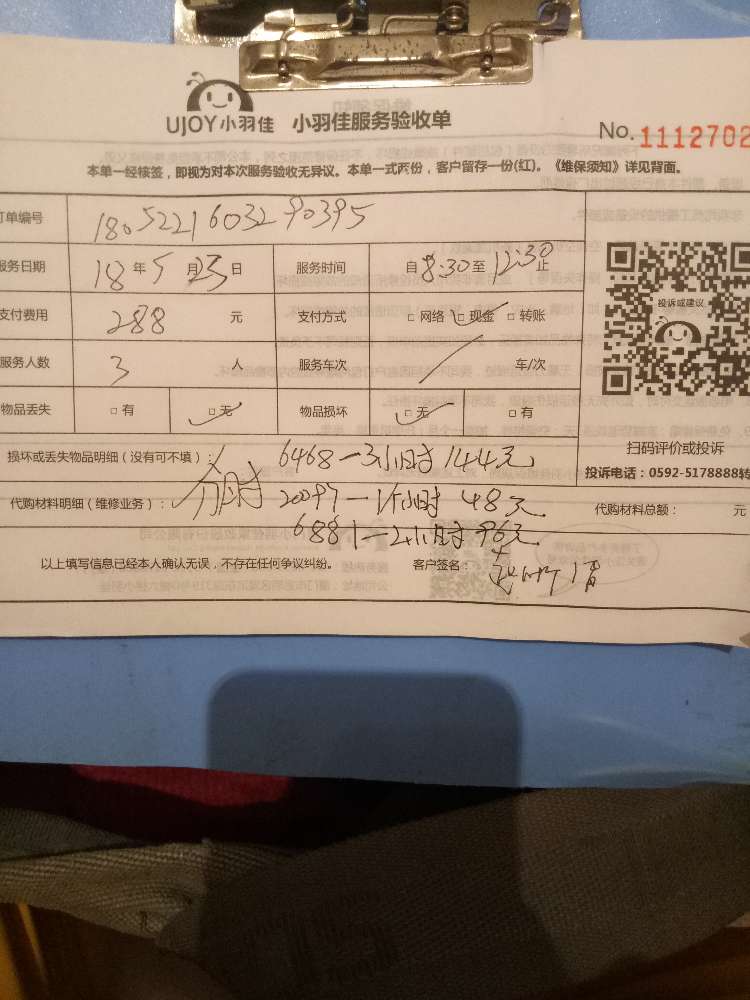 UJOY小羽佳 小羽佳服务验收单 No. 1112702
本单一经核签,即视为对本次服务验收无异议。本单一式两份,客户留存一份(红)。《维保须知》详见背面。
订单编号 1805221603290395
服务日期 18年5月23日 服务时间 自8:30至12:30止
支付费用 288 元 支付方式 □网络 □现金 □转账
服务人数 3 人 服务车次 / 车/次
投诉或建议
物品丢失 □有 □无 物品损坏 □无 □有
扫码评价或投诉
投诉电话:0592-5178888转
损坏或丢失物品明细(没有可不填): 6468-3小时 144元
代购材料明细(维修业务): 分时 20097-1个小时 48元 代购材料总额: 元
6881-2小时 96元
以上填写信息已经本人确认无误,不存在任何争议纠纷。 客户签名: